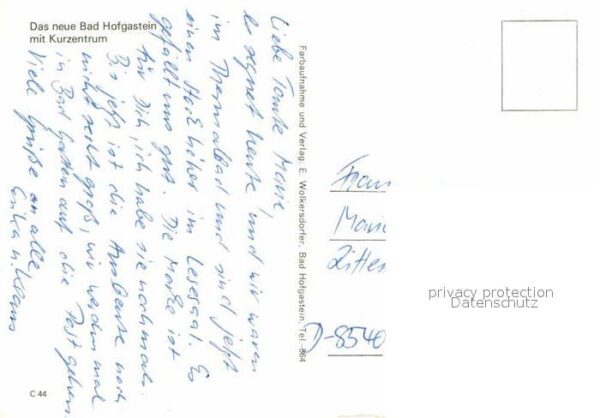 Das neue Bad Hofgastein
mit Kurzentrum
Liebe Tante Marie,
es regnet heute, und wir waren
im Thermalbad und sind jetzt
einen Stock höher im Lesesaal. Es
gefällt uns gut. Die Marke ist
für Dich, ich habe sie nochmals.
Bis jetzt ist die Ausbeute noch
nicht sehr groß, wir werden mal
in Bad Gastein auf die Post gehen.
Viele Grüße an alle
Erika u.
Farbaufnahme und Verlag: E. Wolkersdorfer, Bad Hofgastein, Tel. 864
Frau
Marie
Ritter
D-8540
privacy protection
Datenschutz
C 44